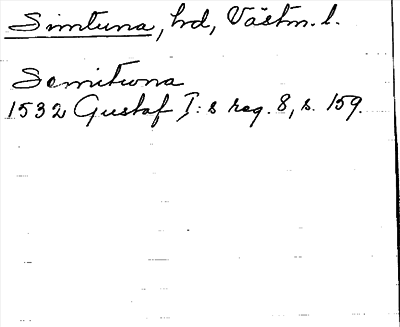 Simtuna, hd, Västm. l.
Somituna
1532 Gustaf I:s reg. 8, s. 159.